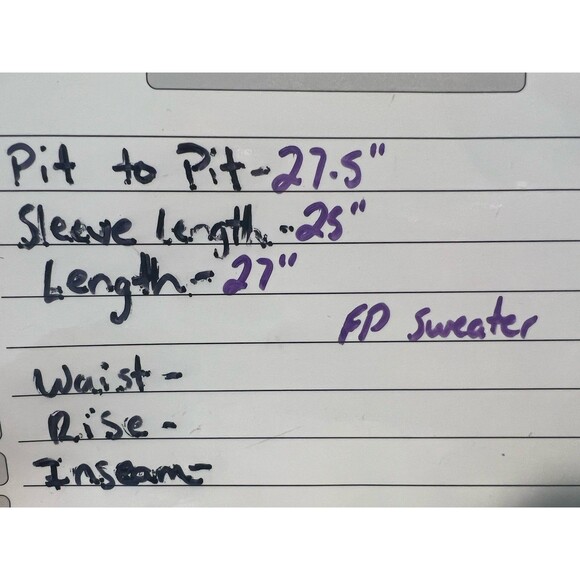 Pit to Pit-27.5"
Sleeve Length-25"
Length-27"
FP Sweater
Waist-
Rise-
Inseam-